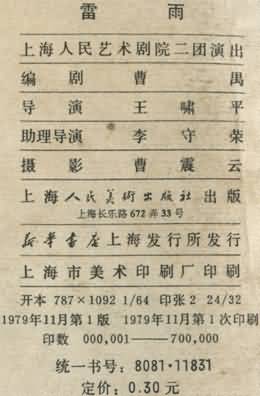 雷 雨
上海人民艺术剧院二团演出
编 剧 曹 禺
导 演 王 啸 平
助理导演 李 守 荣
摄 影 曹 震 云
上海人民美術出版社出版
上海长乐路 672 弄 33 号
新华書店上海发行所发行
上海市美术印刷厂印刷
开本 787×1092 1/64 印张 2 24/32
1979年11月第1版 1979年11月第1次印刷
印数 000,001——700,000
统一书号：8081·11831
定价：0.30 元